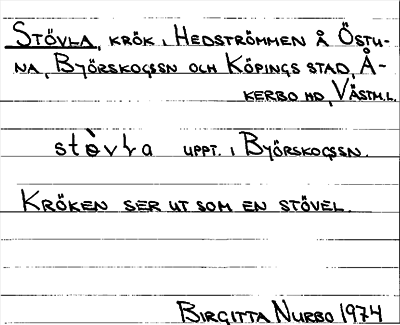 Stövla, krök i Hedströmmen å Östu-
na, Byörskogssn och Köpings stad, Å-
kerbo hd, Västml.
stὲvḷa uppt. i Byörskogssn.
Kröken ser ut som en stövel.
Birgitta Nurbo 1974